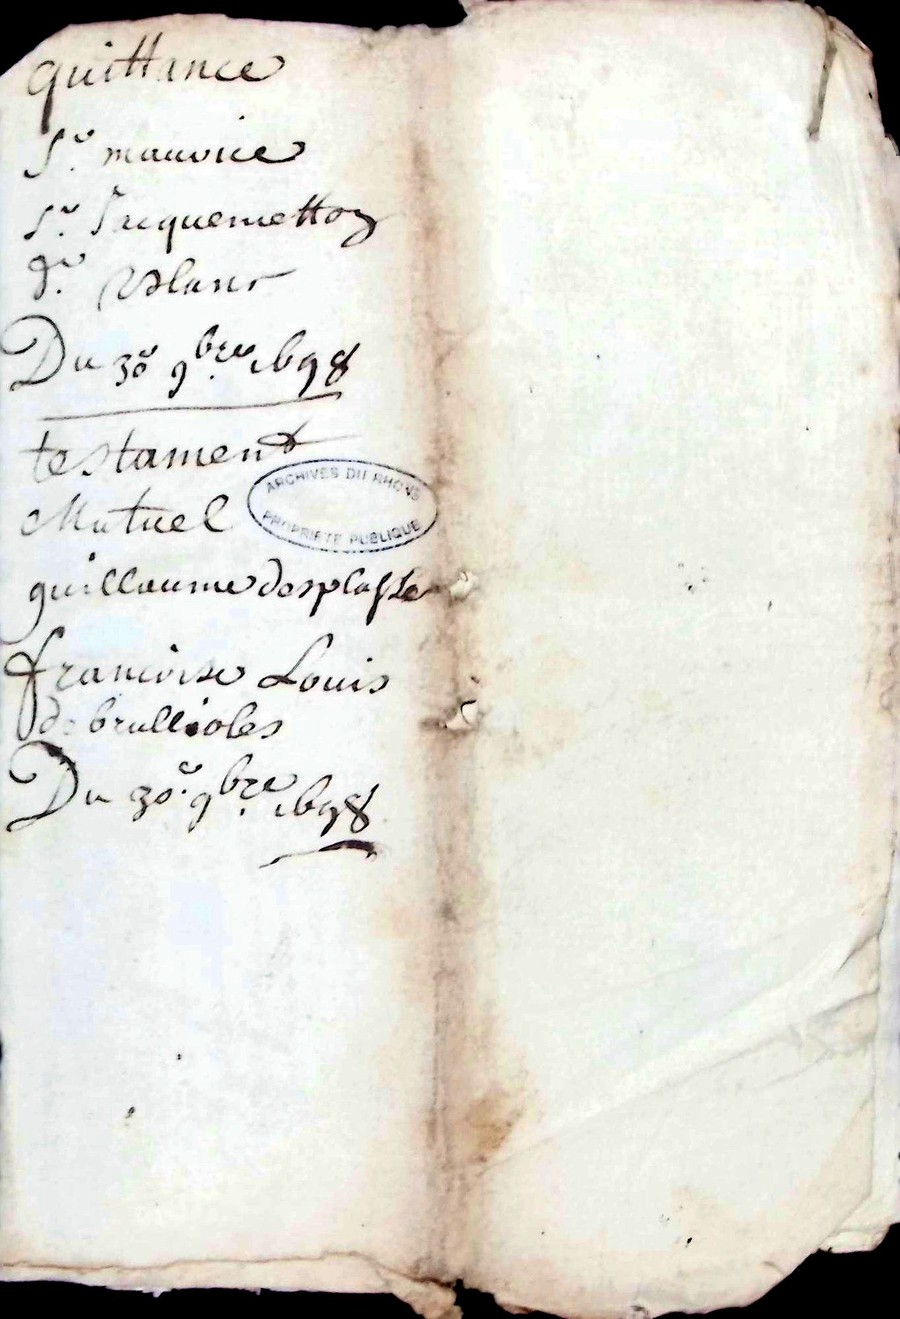 quittance
Sr. maurice
Sr. Jacquemetton
Sr. Blanc
Du 30e 9bre 1698
testament
Mutuel
ARCHIVES DU RHONE
PROPRIETE PUBLIQUE
guillaume desplasse
francoise Louis
de brullioles
Du 30e. 9bre 1698